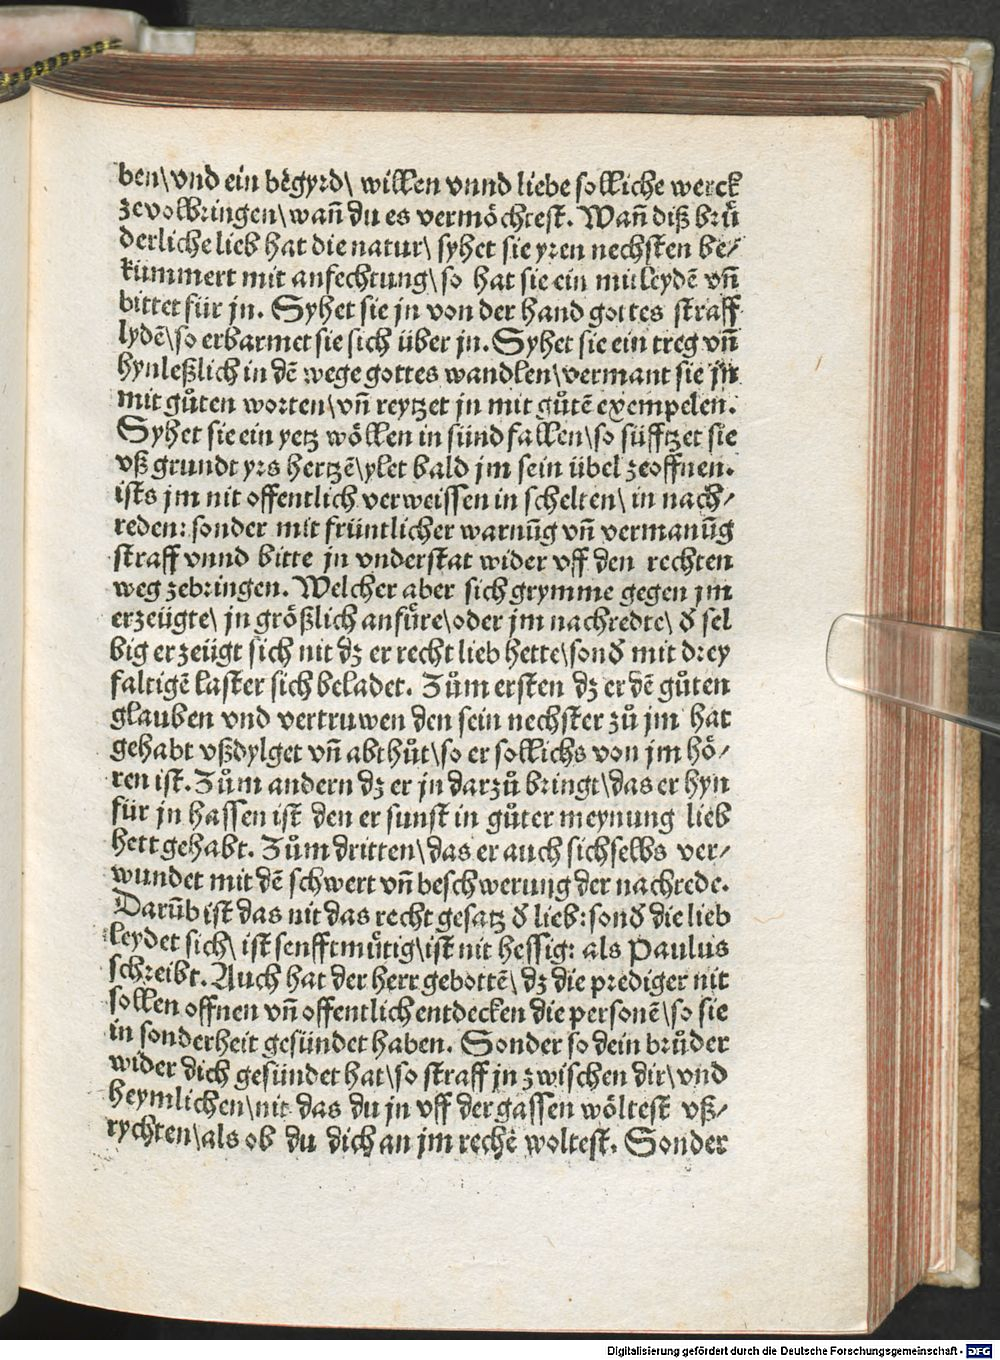 ben\ vnd ein begyrd\ willen vnnd liebe solliche werck
zevolbringen\ wañ du es vermöchtest. Wañ diß bruͤ
derliche lieb hat die natur\ syhet sie yren nechsten be⸗
kümmert mit anfechtung\ so hat sie ein mitleydē vñ
bittet für jn. Syhet sie jn von der hand gottes straff
lydē\ so erbarmet sie sich über jn. Syhet sie ein treg vñ
hynleßlich in dē wege gottes wandlen\ vermant sie jn
mit gůten worten\ vñ reytzet jn mit gůtē exempelen.
Syhet sie ein yetz wöllen in sünd fallen\ so süfftzet sie
vß grundt yrs hertzē\ ylet bald jm sein übel zeoffnen.
ists jm nit offentlich verweissen in schelten\ in nach⸗
reden: sonder mit früntlicher warnūg vñ vermanūg
straff vnnd bitte jn vnderstat wider vff den rechten
weg zebringen. Welcher aber sich grymme gegen jm
erzeügte\ jn größlich anfuͤre\ oder jm nachredte\ ď sel
big erzeügt sich nit dz er recht lieb hette\ sonď mit drey
faltigē laster sich beladet. Zům ersten dz er dē gůten
glauben vnd vertruwen den sein nechster zů jm hat
gehabt vßdylget vñ abthůt\ so er sollichs von jm hö⸗
ren ist. Zům andern dz er jn darzů bringt\ das er hyn
für jn hassen ist den er sunst in gůter meynung lieb
hett gehabt. Zům dritten\ das er auch sichselbs ver⸗
wundet mit dē schwert vñ beschwerung der nachrede.
Darūb ist das nit das recht gesatz ď lieb: sonď die lieb
leydet sich\ ist senfftmuͤtig\ ist nit hessig: als Paulus
schreibt. Auch hat der herr gebottē\ dz die prediger nit
sollen offnen vñ offentlich entdecken die personē\ so sie
in sonderheit gesündet haben. Sonder so dein brůder
wider dich gesündet hat\ so straff jn zwischen dir\ vnd
heymlichen\ nit das du jn vff der gassen wöltest vß⸗
rychten\ als ob du dich an jm rechē woltest. Sonder
Digitalisierung gefördert durch die Deutsche Forschungsgemeinschaft - DFG